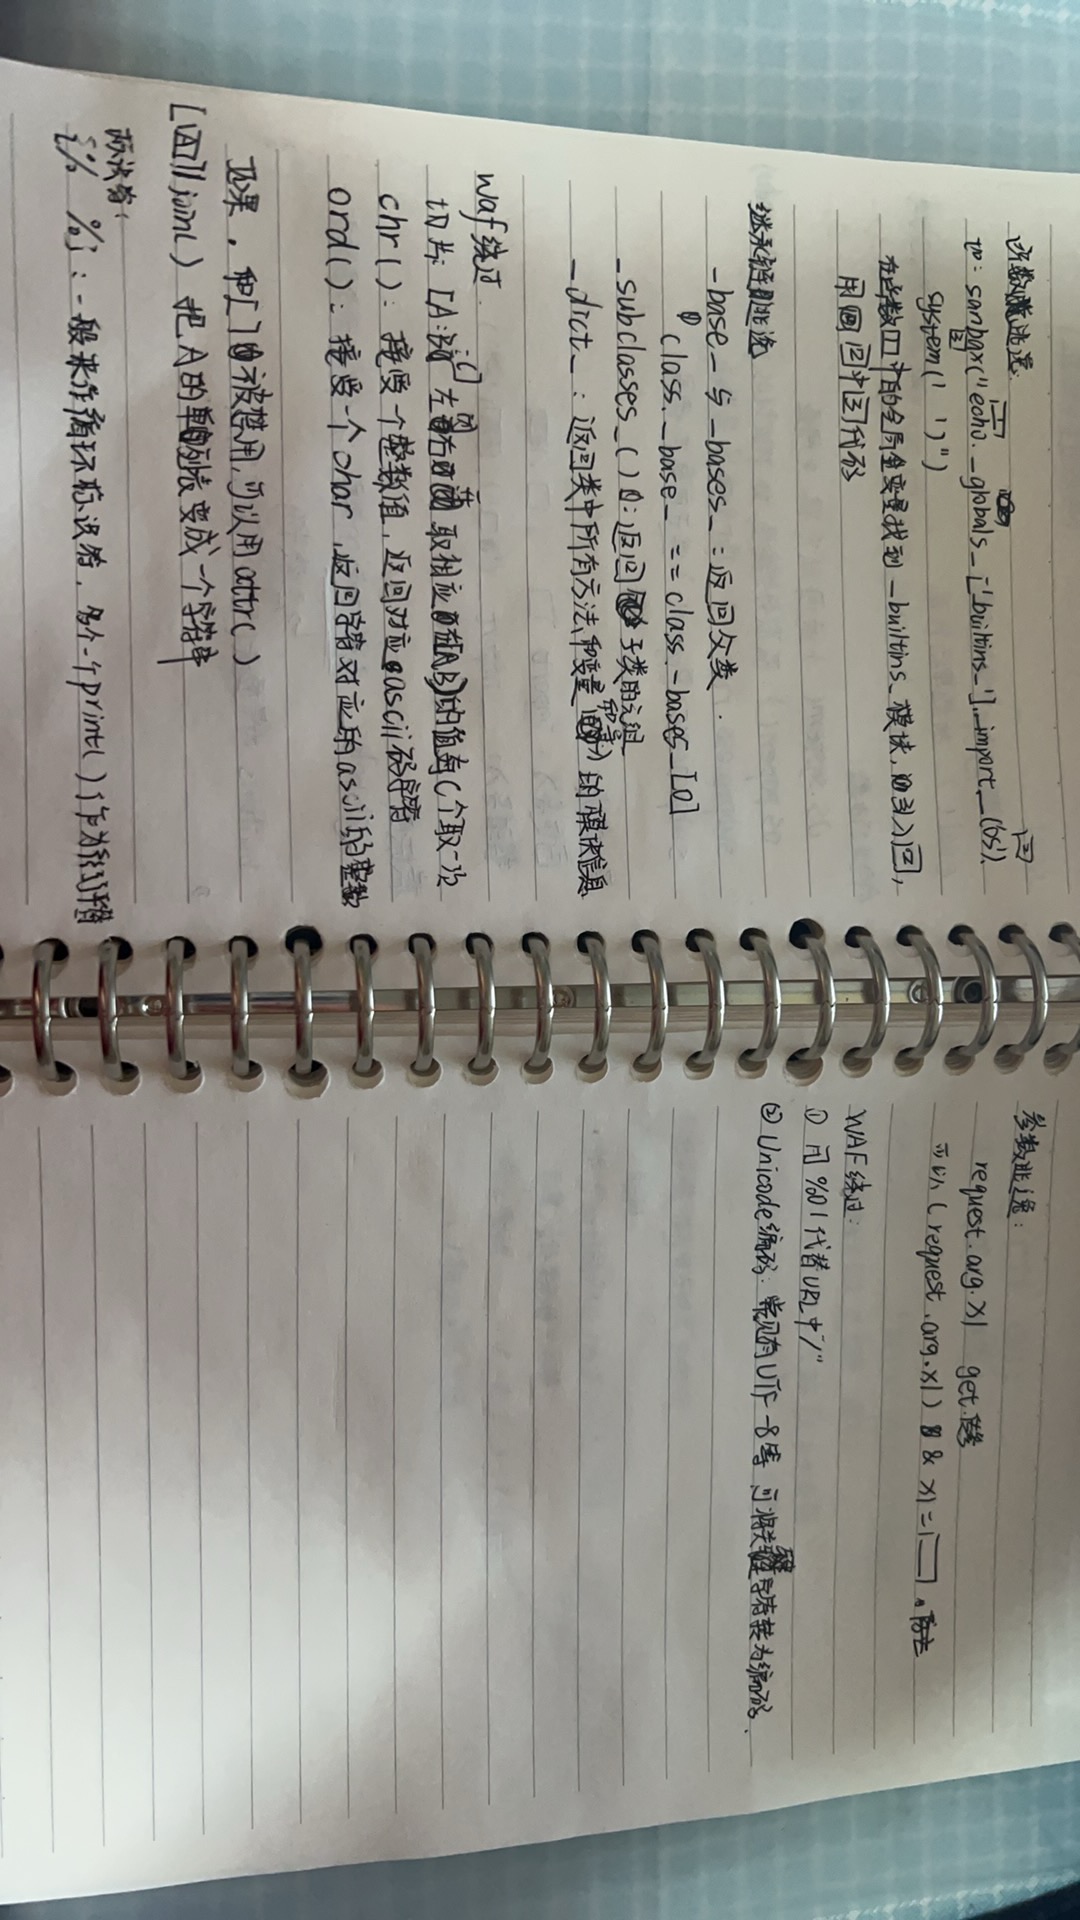 函数逃逸:
如: sanbax("echo._globals_['builtins_']._import_('os').
system(' ')")
在函数①中的全局变量找到_builtins_模块,引入③,
用②中③代码
继承链逃逸
_base_与_bases_:返回父类.
class._base_ == class._bases_[0]
_subclasses_():返回子类的元组
_dict_:返回类中所有方法和变量的模块信息
waf绕过.
切片: [A:B:C] 左闭右开 取相应[A,B)的值每C个取一次
chr():接受个整数值,返回对应ascii码字符
ord():接受一个char,返回字符对应的ascii的整数
如果.和[]被禁用,可以用attr()
[A]|join() 把A的列表变成一个字符串
标识符:
{% %}:一般来作循环标识符,多个print()作为绕过
参数逃逸:
request.arg.x1 get
可以(request.arg.x1) & x1=
WAF绕过:
① 用%01代替URL中"/"
② Unicode编码:常见的UTF-8等 可将关键字符转为编码.